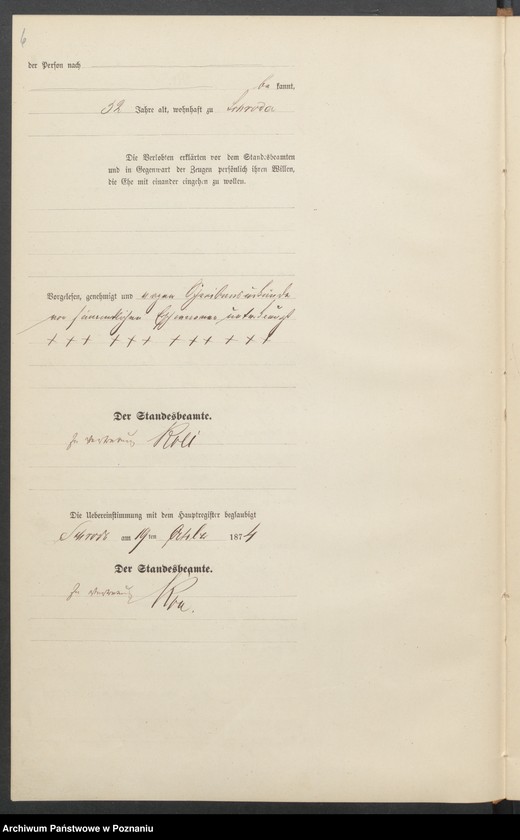 6
der Person nach
be kannt,
32 Jahre alt, wohnhaft zu Schroda
Die Verlobten erklärten vor dem Standesbeamten
und in Gegenwart der Zeugen persönlich ihren Willen,
die Ehe mit einander eingehen zu wollen.
Vorgelesen, genehmigt und wegen Schreibensunkunde
von sämmtlichen unterkreuzt
+++ +++ +++ +++
Der Standesbeamte.
In Vertretung
Die Uebereinstimmung mit dem Hauptregister beglaubigt
Schroda am 19ten October 1874
Der Standesbeamte.
In Vertretung
Archiwum Państwowe w Poznaniu